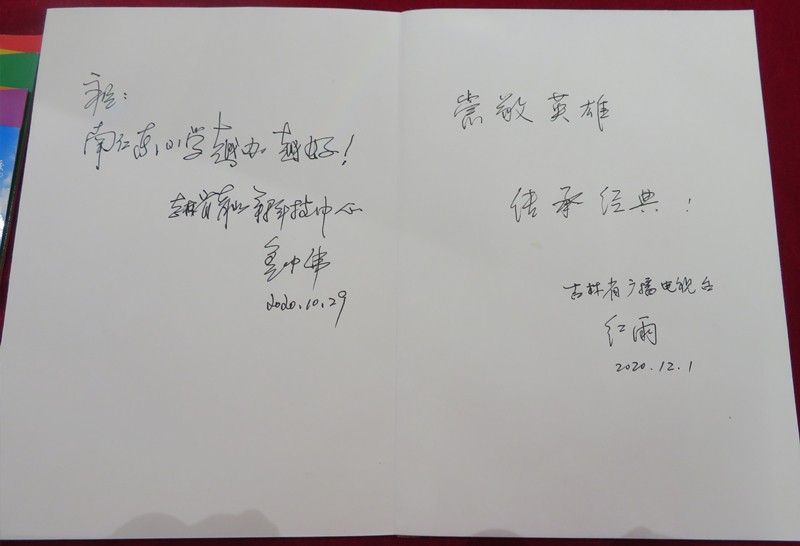 祝：
南仁东小学越办越好！
吉林省 科技中心
2020.10.29
崇敬英雄
传承经典！
吉林省广播电视台
红雨
2020.12.1